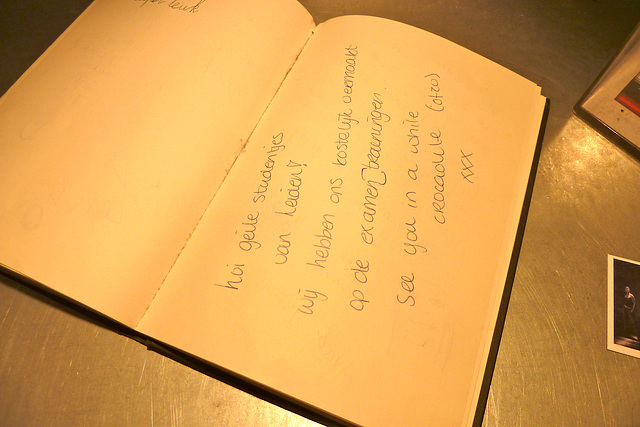 leuk
hoi geile studentjes
van Leiden!
wij hebben ons kostelijk vermaakt
op de examentrainingen.
See you in a while
crocodile (ofzo)
xxx